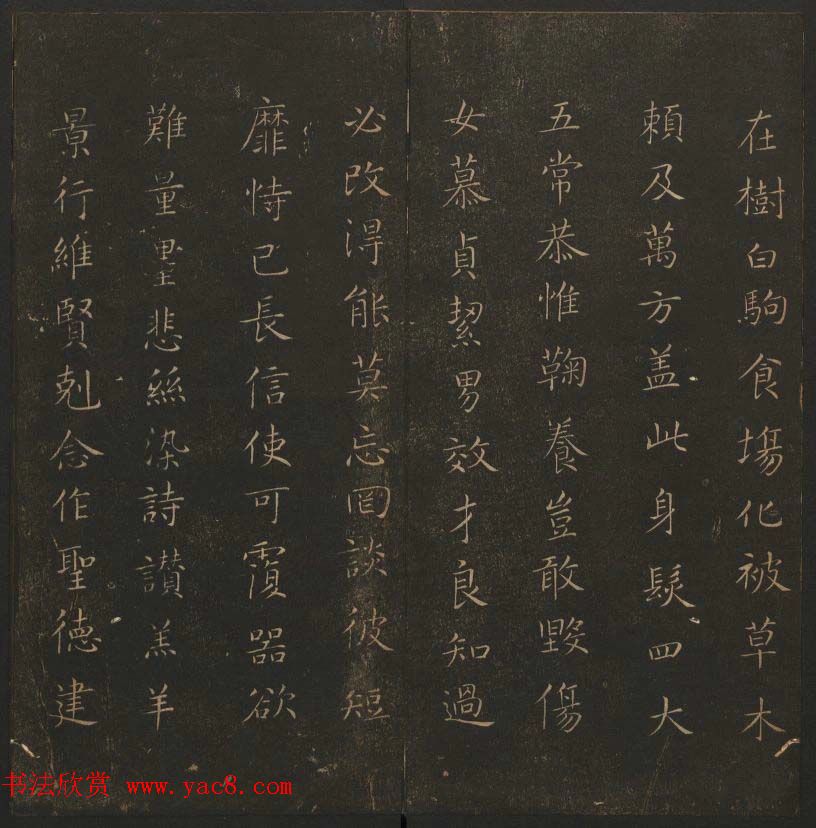 在樹白駒食塲化被草木
頼及萬方盖此身髮四大
五常恭惟鞠養豈敢毀傷
女慕貞絜男效才良知過
必改得能莫忘罔談彼短
靡恃己長信使可覆器欲
難量墨悲絲染詩讃羔羊
景行維賢剋念作聖德建
书法欣赏 www.yac8.com